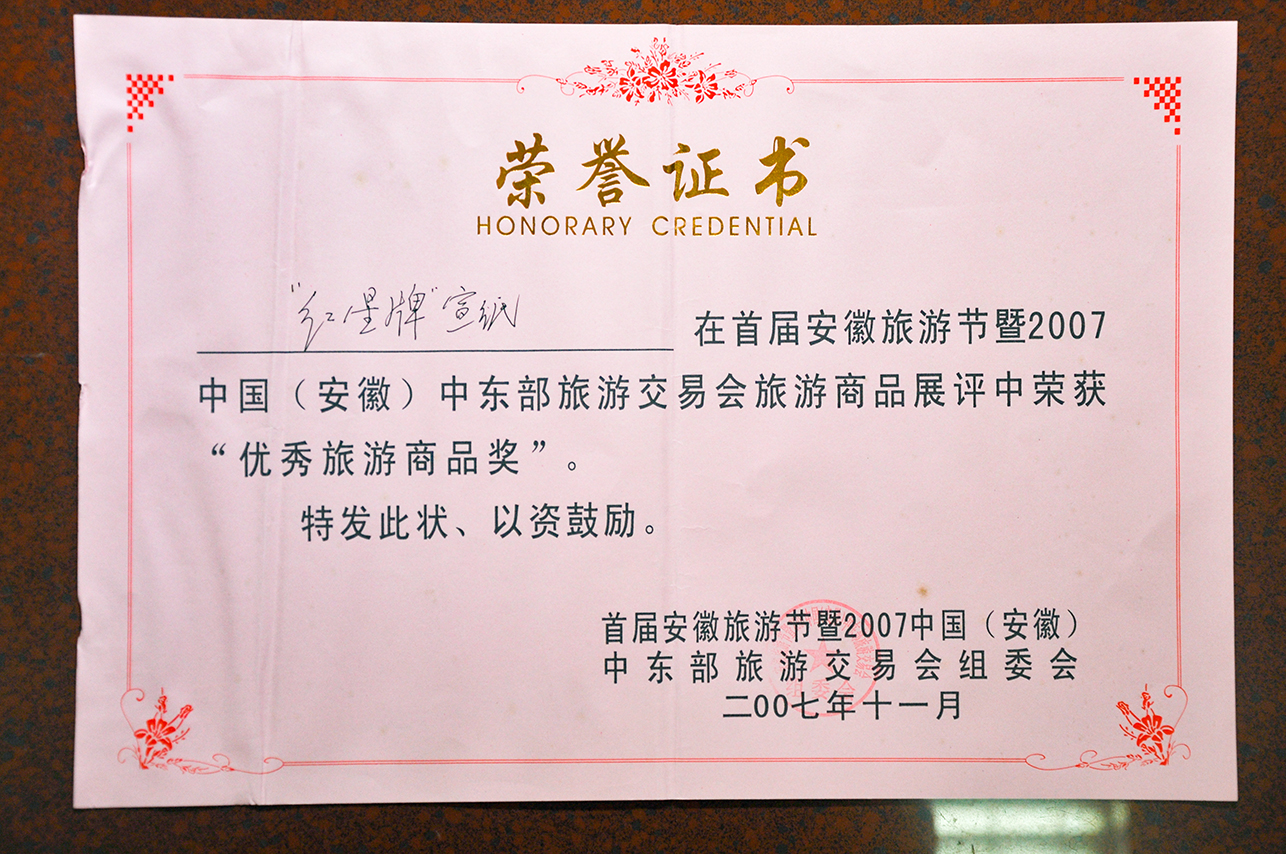 荣誉证书
HONORARY CREDENTIAL
“红星牌”宣纸 在首届安徽旅游节暨2007
中国（安徽）中东部旅游交易会旅游商品展评中荣获
“优秀旅游商品奖”。
特发此状、以资鼓励。
首届安徽旅游节暨2007中国（安徽）
中东部旅游交易会组委会
二00七年十一月
组委会